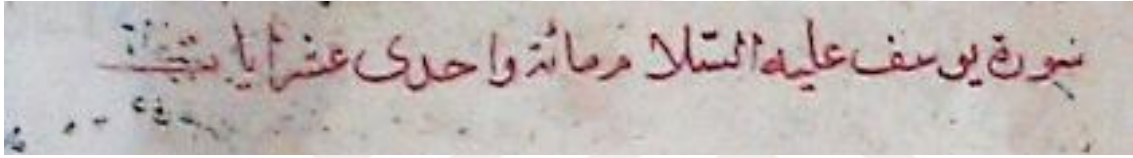 سورة يوسف عليه السلام مائة واحدى عشر ايات